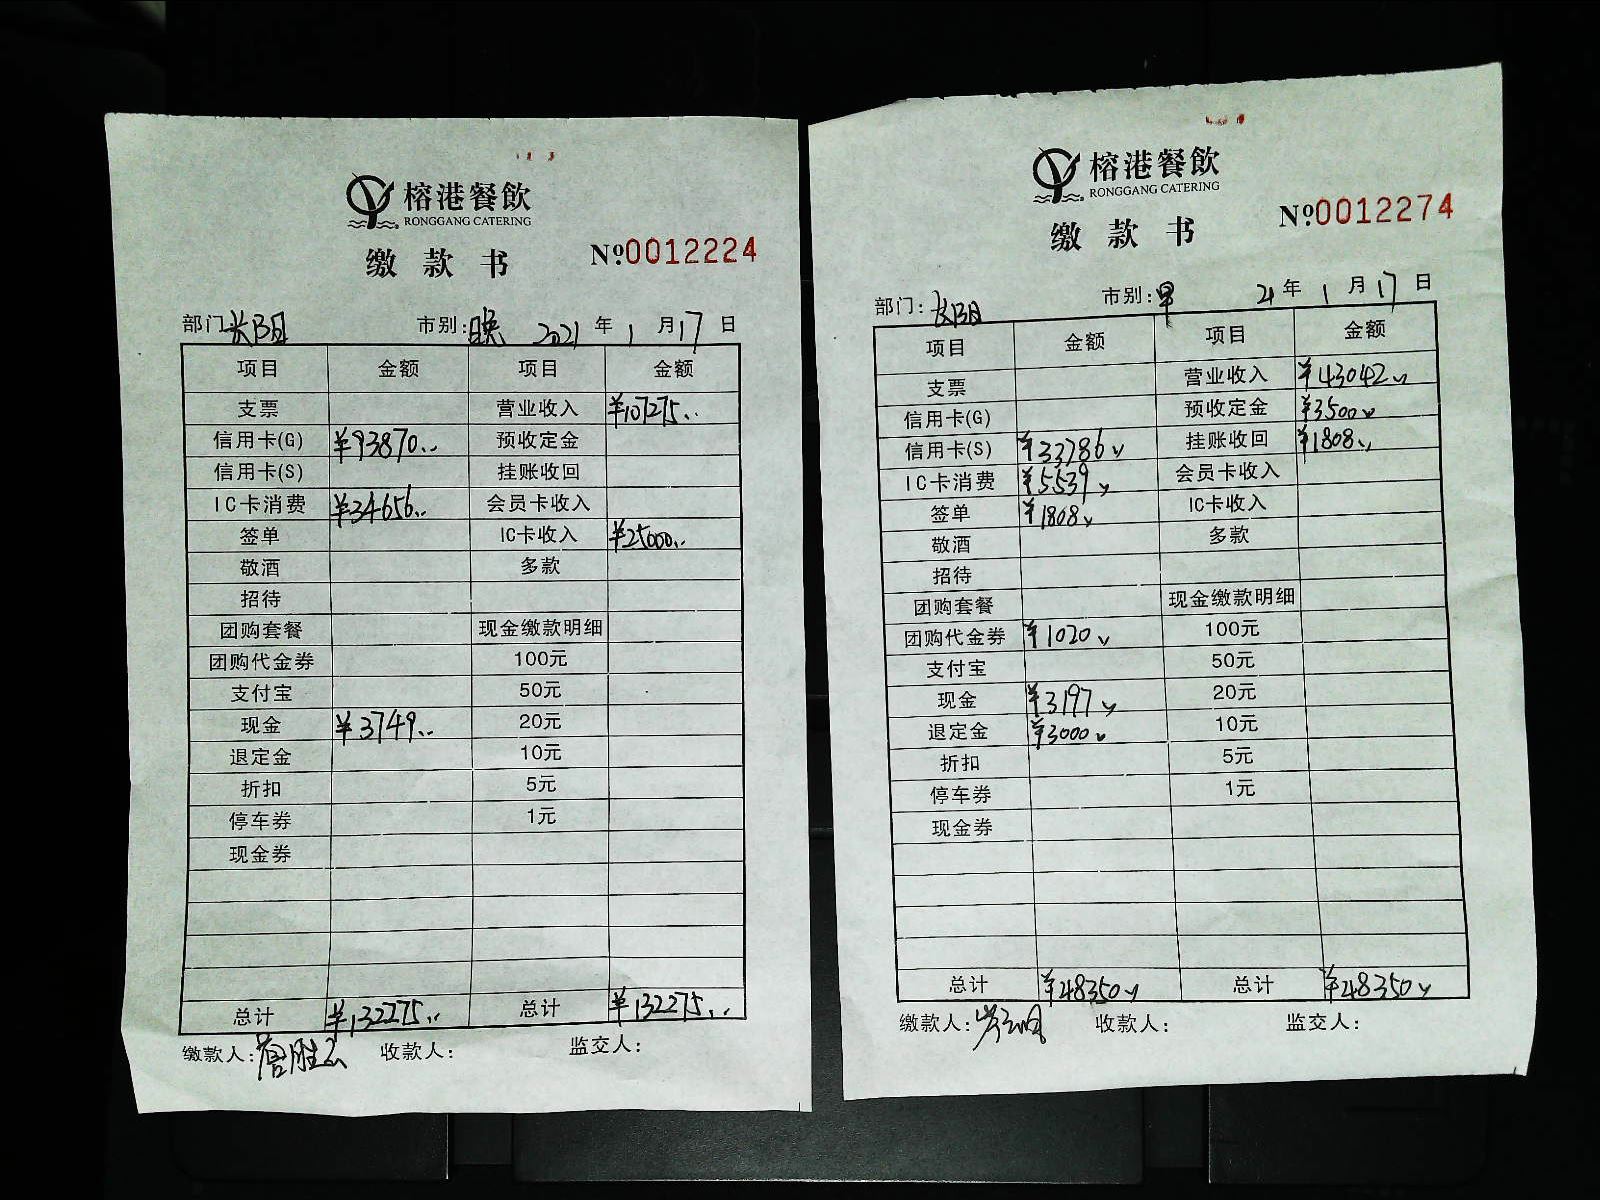 榕港餐飲
RONGGANG CATERING
缴款书
№0012224
部门:长阳 市别:晚 2021年1月17日
项目 金额 项目 金额
支票 营业收入 ¥107275..
信用卡(G) ¥93870.. 预收定金
信用卡(S) 挂账收回
IC卡消费 ¥34656.. 会员卡收入
签单 IC卡收入 ¥25000..
敬酒 多款
招待
团购套餐 现金缴款明细
团购代金券 100元
支付宝 50元
现金 ¥3749.. 20元
退定金 10元
折扣 5元
停车券 1元
现金券
总计 ¥132275.. 总计 ¥132275..
缴款人: 收款人: 监交人:
榕港餐飲
RONGGANG CATERING
缴款书
№0012274
部门:长阳 市别:早 21年1月17日
项目 金额 项目 金额
支票 营业收入 ¥43042
信用卡(G) 预收定金 ¥3500
信用卡(S) ¥33786 挂账收回 ¥1808
IC卡消费 ¥5539 会员卡收入
签单 ¥1808 IC卡收入
敬酒 多款
招待
团购套餐 现金缴款明细
团购代金券 ¥1020 100元
支付宝 50元
现金 ¥3197 20元
退定金 ¥3000 10元
折扣 5元
停车券 1元
现金券
总计 ¥48350 总计 ¥48350
缴款人: 收款人: 监交人: